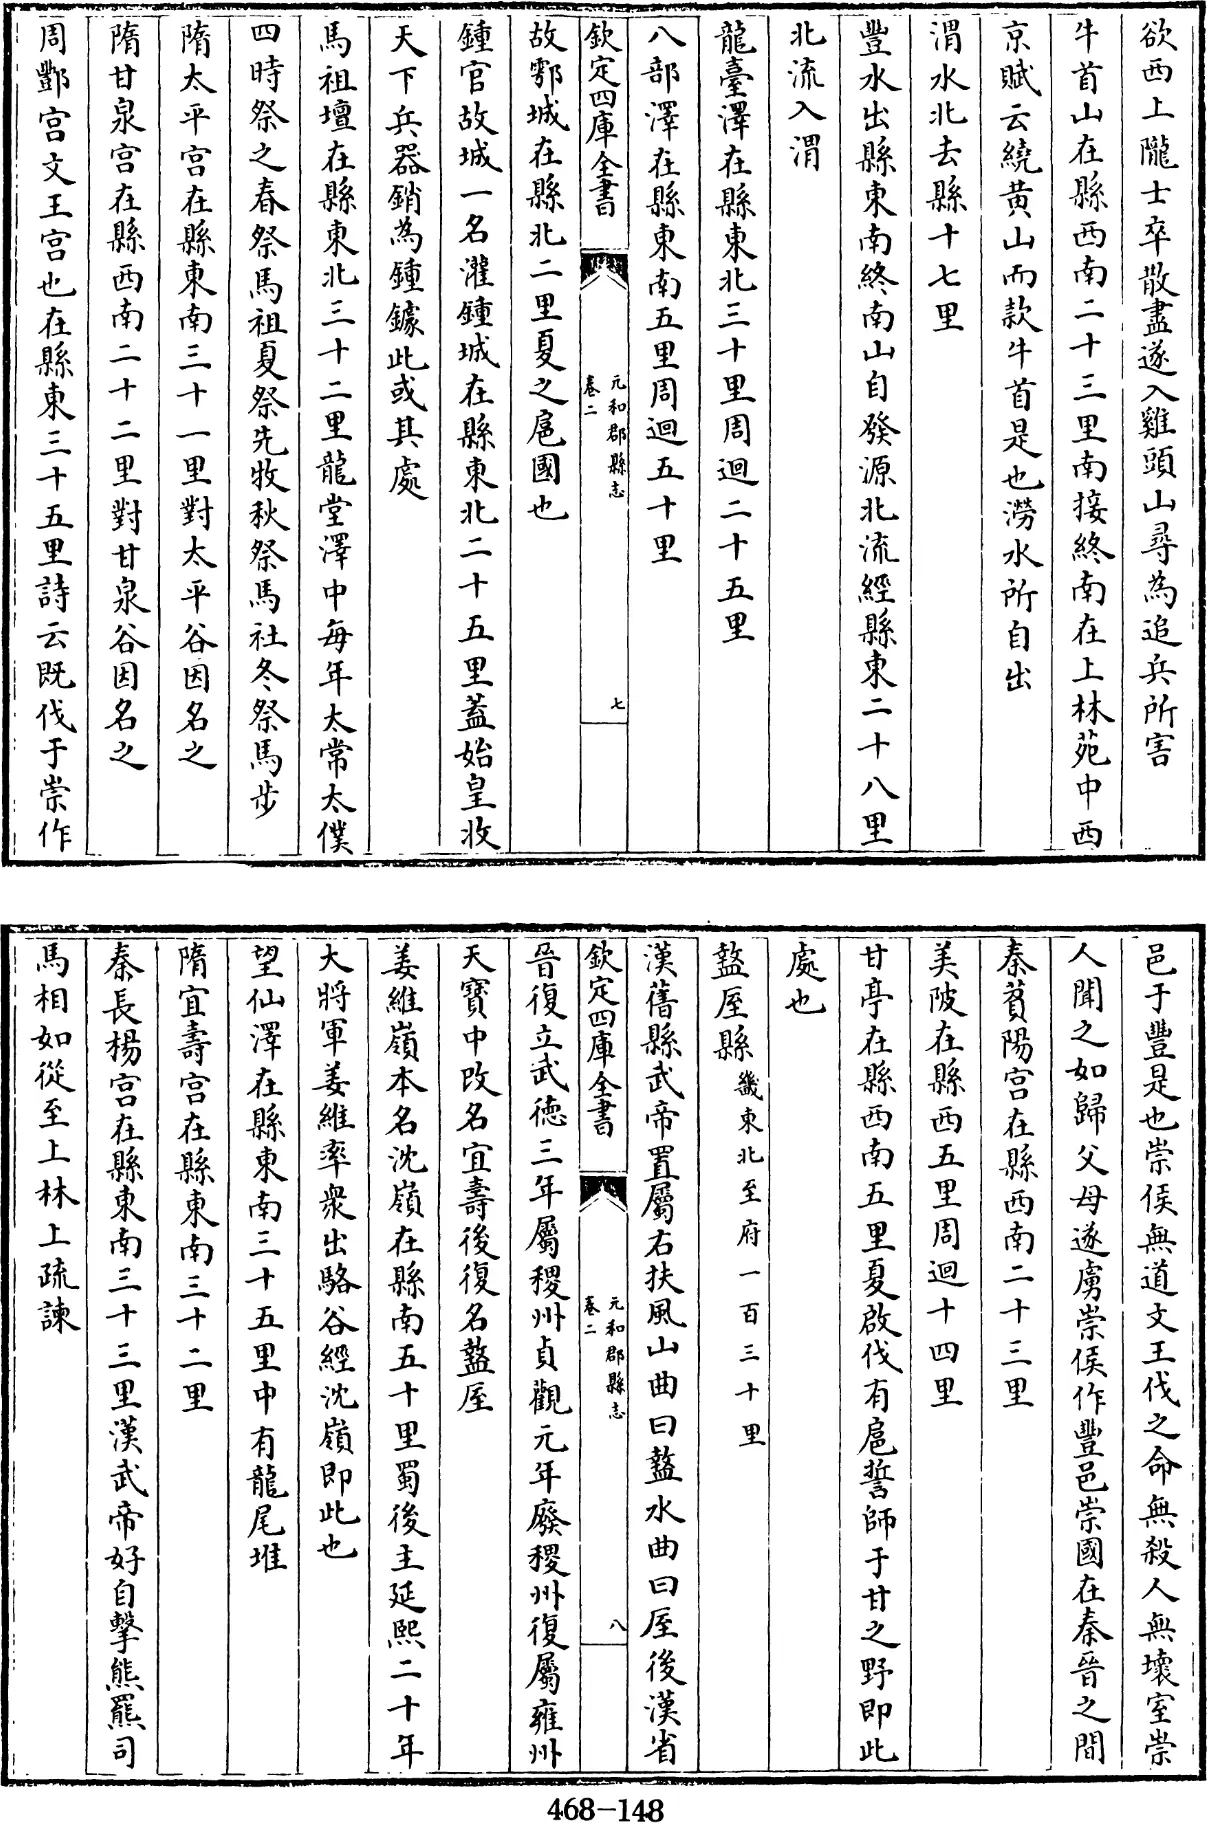 欲西上隴士卒散盡遂入雞頭山尋為追兵所害
牛首山在縣西南二十三里南接終南在上林苑中西
京賦云繞黄山而款牛首是也澇水所自出
渭水北去縣十七里
豐水出縣東南終南山自發源北流經縣東二十八里
北流入渭
龍臺澤在縣東北三十里周迴二十五里
八部澤在縣東南五里周迴五十里
欽定四庫全書
元和郡縣志
卷二
七
故鄠城在縣北二里夏之扈國也
鍾官故城一名灌鍾城在縣東北二十五里蓋始皇收
天下兵器銷為鍾鐻此或其處
馬祖壇在縣東北三十二里龍堂澤中每年太常太僕
四時祭之春祭馬祖夏祭先牧秋祭馬社冬祭馬步
隋太平宫在縣東南三十一里對太平谷因名之
隋甘泉宫在縣西南二十二里對甘泉谷因名之
周酆宫文王宫也在縣東三十五里詩云既伐于崇作
邑于豐是也崇侯無道文王伐之命無殺人無壞室崇
人聞之如歸父母遂虜崇侯作豐邑崇國在秦晉之間
秦萯陽宫在縣西南二十三里
美陂在縣西五里周迴十四里
甘亭在縣西南五里夏啟伐有扈誓師于甘之野即此
處也
盩厔縣畿東北至府一百三十里
漢舊縣武帝置屬右扶風山曲曰盩水曲曰厔後漢省
欽定四庫全書
元和郡縣志
卷二
八
晉復立武德三年屬稷州貞觀元年廢稷州復屬雍州
天寶中改名宜壽後復名盩厔
姜維嶺本名沈嶺在縣南五十里蜀後主延熙二十年
大將軍姜維率衆出駱谷經沈嶺即此也
望仙澤在縣東南三十五里中有龍尾堆
隋宜壽宫在縣東南三十二里
秦長楊宫在縣東南三十三里漢武帝好自擊熊羆司
馬相如從至上林上疏諫
468-148